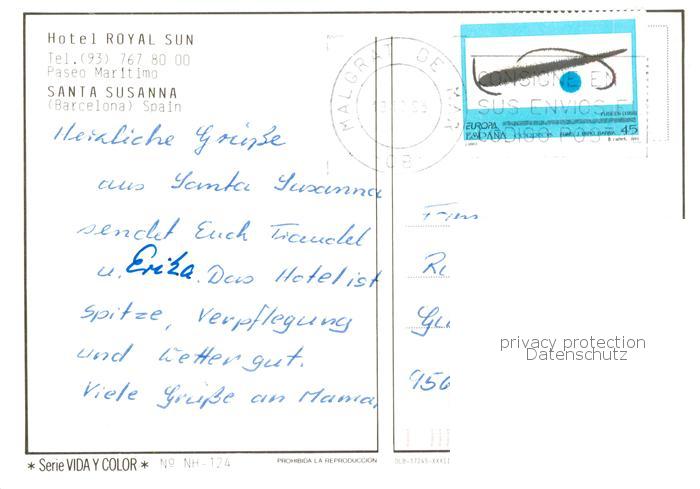 Hotel ROYAL SUN
Tel.(93) 767 80 00
Paseo Marítimo
SANTA SUSANNA
(Barcelona) Spain
Herzliche Grüße
aus Santa Susanna
sendet Euch Traudel
u. Erika. Das Hotel ist
spitze, Verpflegung
und Wetter gut.
Viele Grüße an Mama,
MALGRAT DE MAR
CONSIGNE EN
SUS ENVIOS E
CODIGO POST
EUROPA
ESPAÑA
45
956
privacy protection
Datenschutz
* Serie VIDA Y COLOR * Nº NH-124
PROHIBIDA LA REPRODUCCION